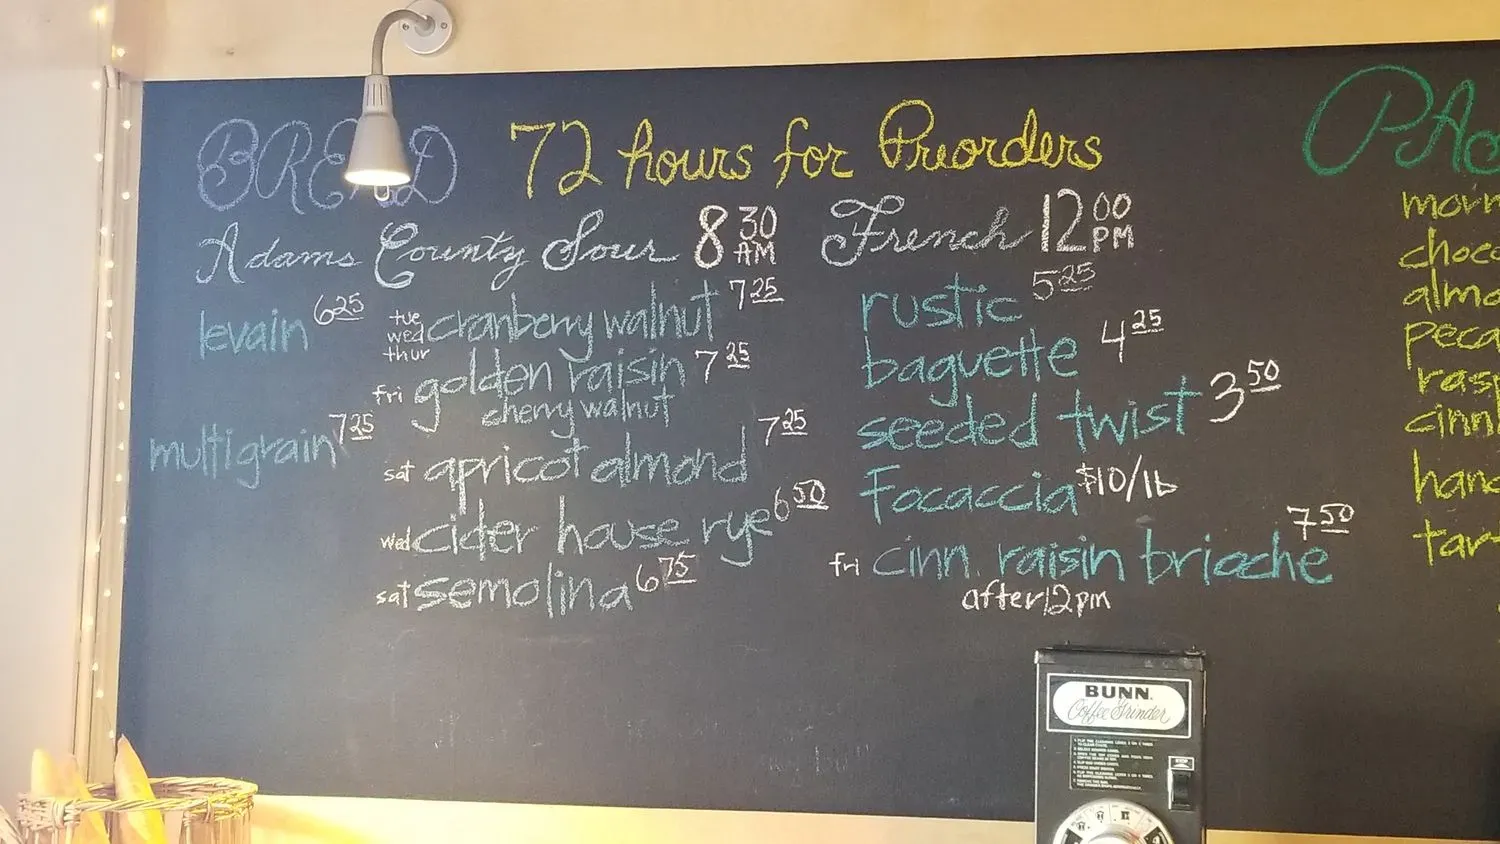 BREAD 72 hours for Preorders
Adams County Sour 8 30 AM
levain 6 25
multigrain 7 25
tue wed thur cranberry walnut 7 25
fri golden raisin 7 25
cherry walnut
sat apricot almond 7 25
wed cider house rye 6 50
sat semolina 6 75
French 12 00 PM
rustic 5 25
baguette 4 25
seeded twist 3 50
Focaccia $10/lb
fri cinn. raisin brioche 7 50
after 12pm
PAS
morn
choco
almo
peca
rasp
cinn
hand
tart
BUNN
Coffee Grinder